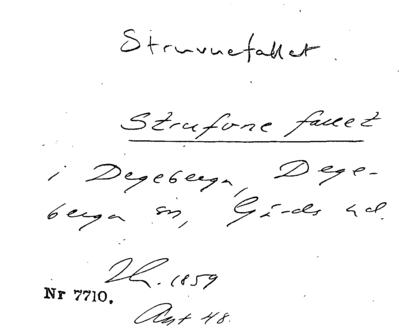 Struvnefallet.
Strufvne fallet
i Degeberga, Dege-
berga sn, Gärds hd.
1859
Nr 7710.
Ant 48.